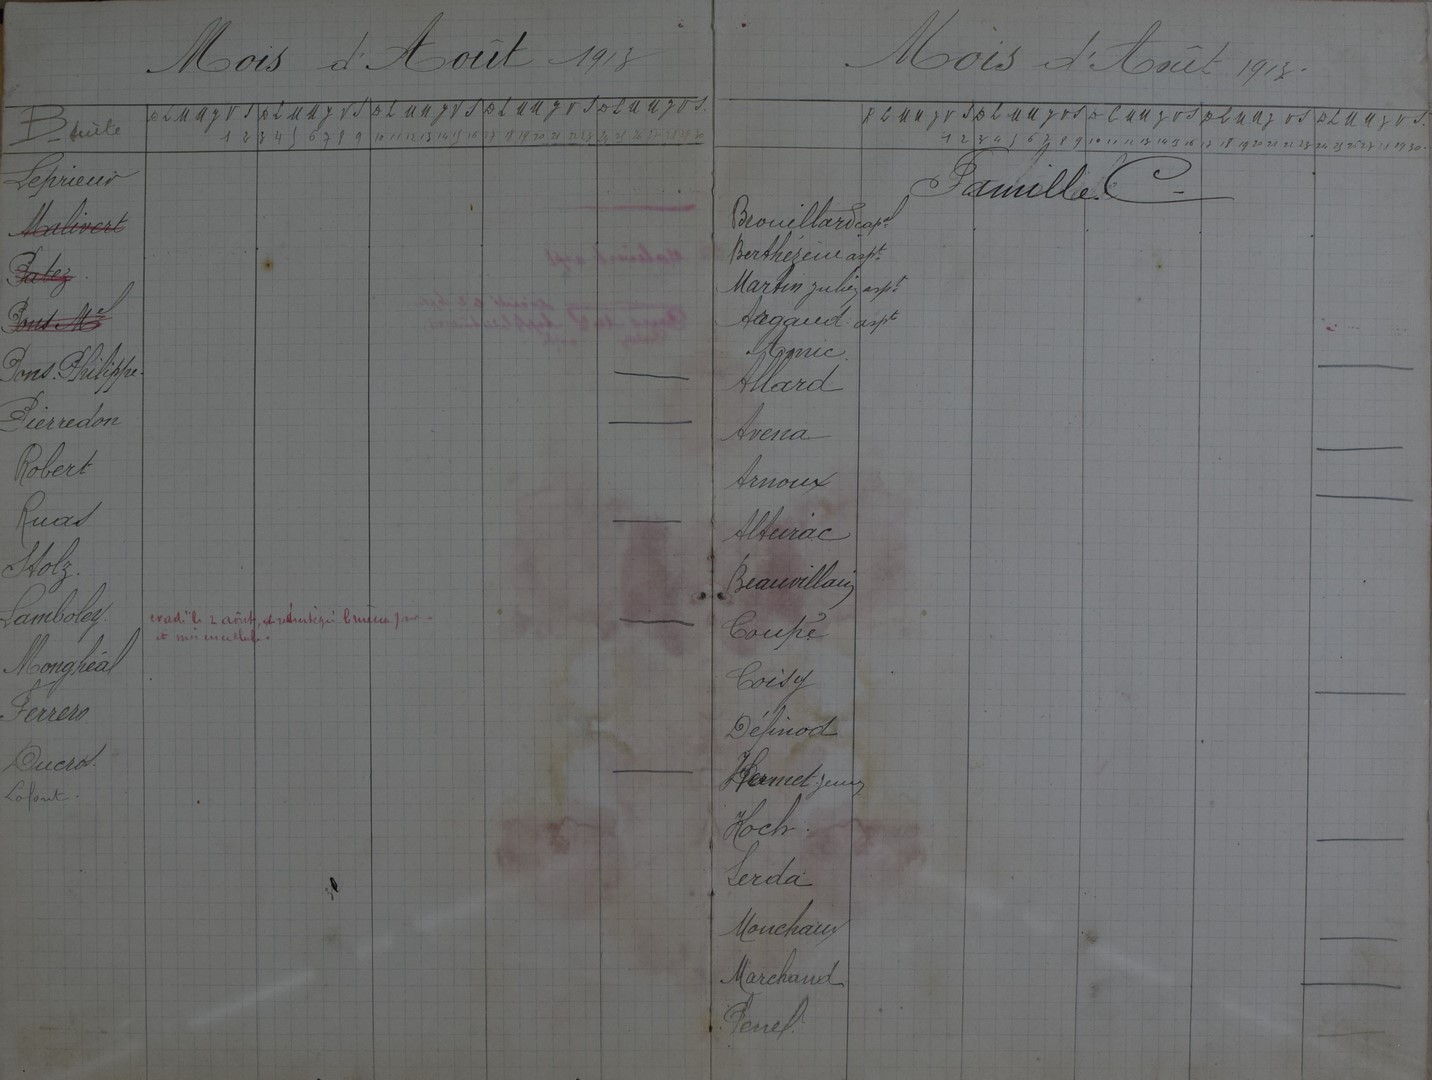 Mois d'Août 1913
B suite
D L M M J V S D L M M J V S D L M M J V S D L M M J V S D L M M J V S
1 2 3 4 5 6 7 8 9 10 11 12 13 14 15 16 17 18 19 20 21 22 23 24 25 26 27 28 29 30
Leprieur
Malivert
Patez
Pons Mel
Pons Philippe
Pierredon
Robert
Ruas
Stolz
Lamboley évadé le 2 août, et réintégré le même jour
Monghéal
Ferrero
Ducros
Mois d'Août 1913
D L M M J V S D L M M J V S D L M M J V S D L M M J V S D L M M J V S
1 2 3 4 5 6 7 8 9 10 11 12 13 14 15 16 17 18 19 20 21 22 23 24 25 26 27 28 29 30
Famille C
Brouillard aspt
Berthézène aspt
Martin aspt
Argaud aspt
Aymic
Allard
Avena
Arnoux
Alturac
Beauvillain
Coupé
Coisy
Définod
Hermet
Koch
Lerda
Monchaux
Marchand
Penel